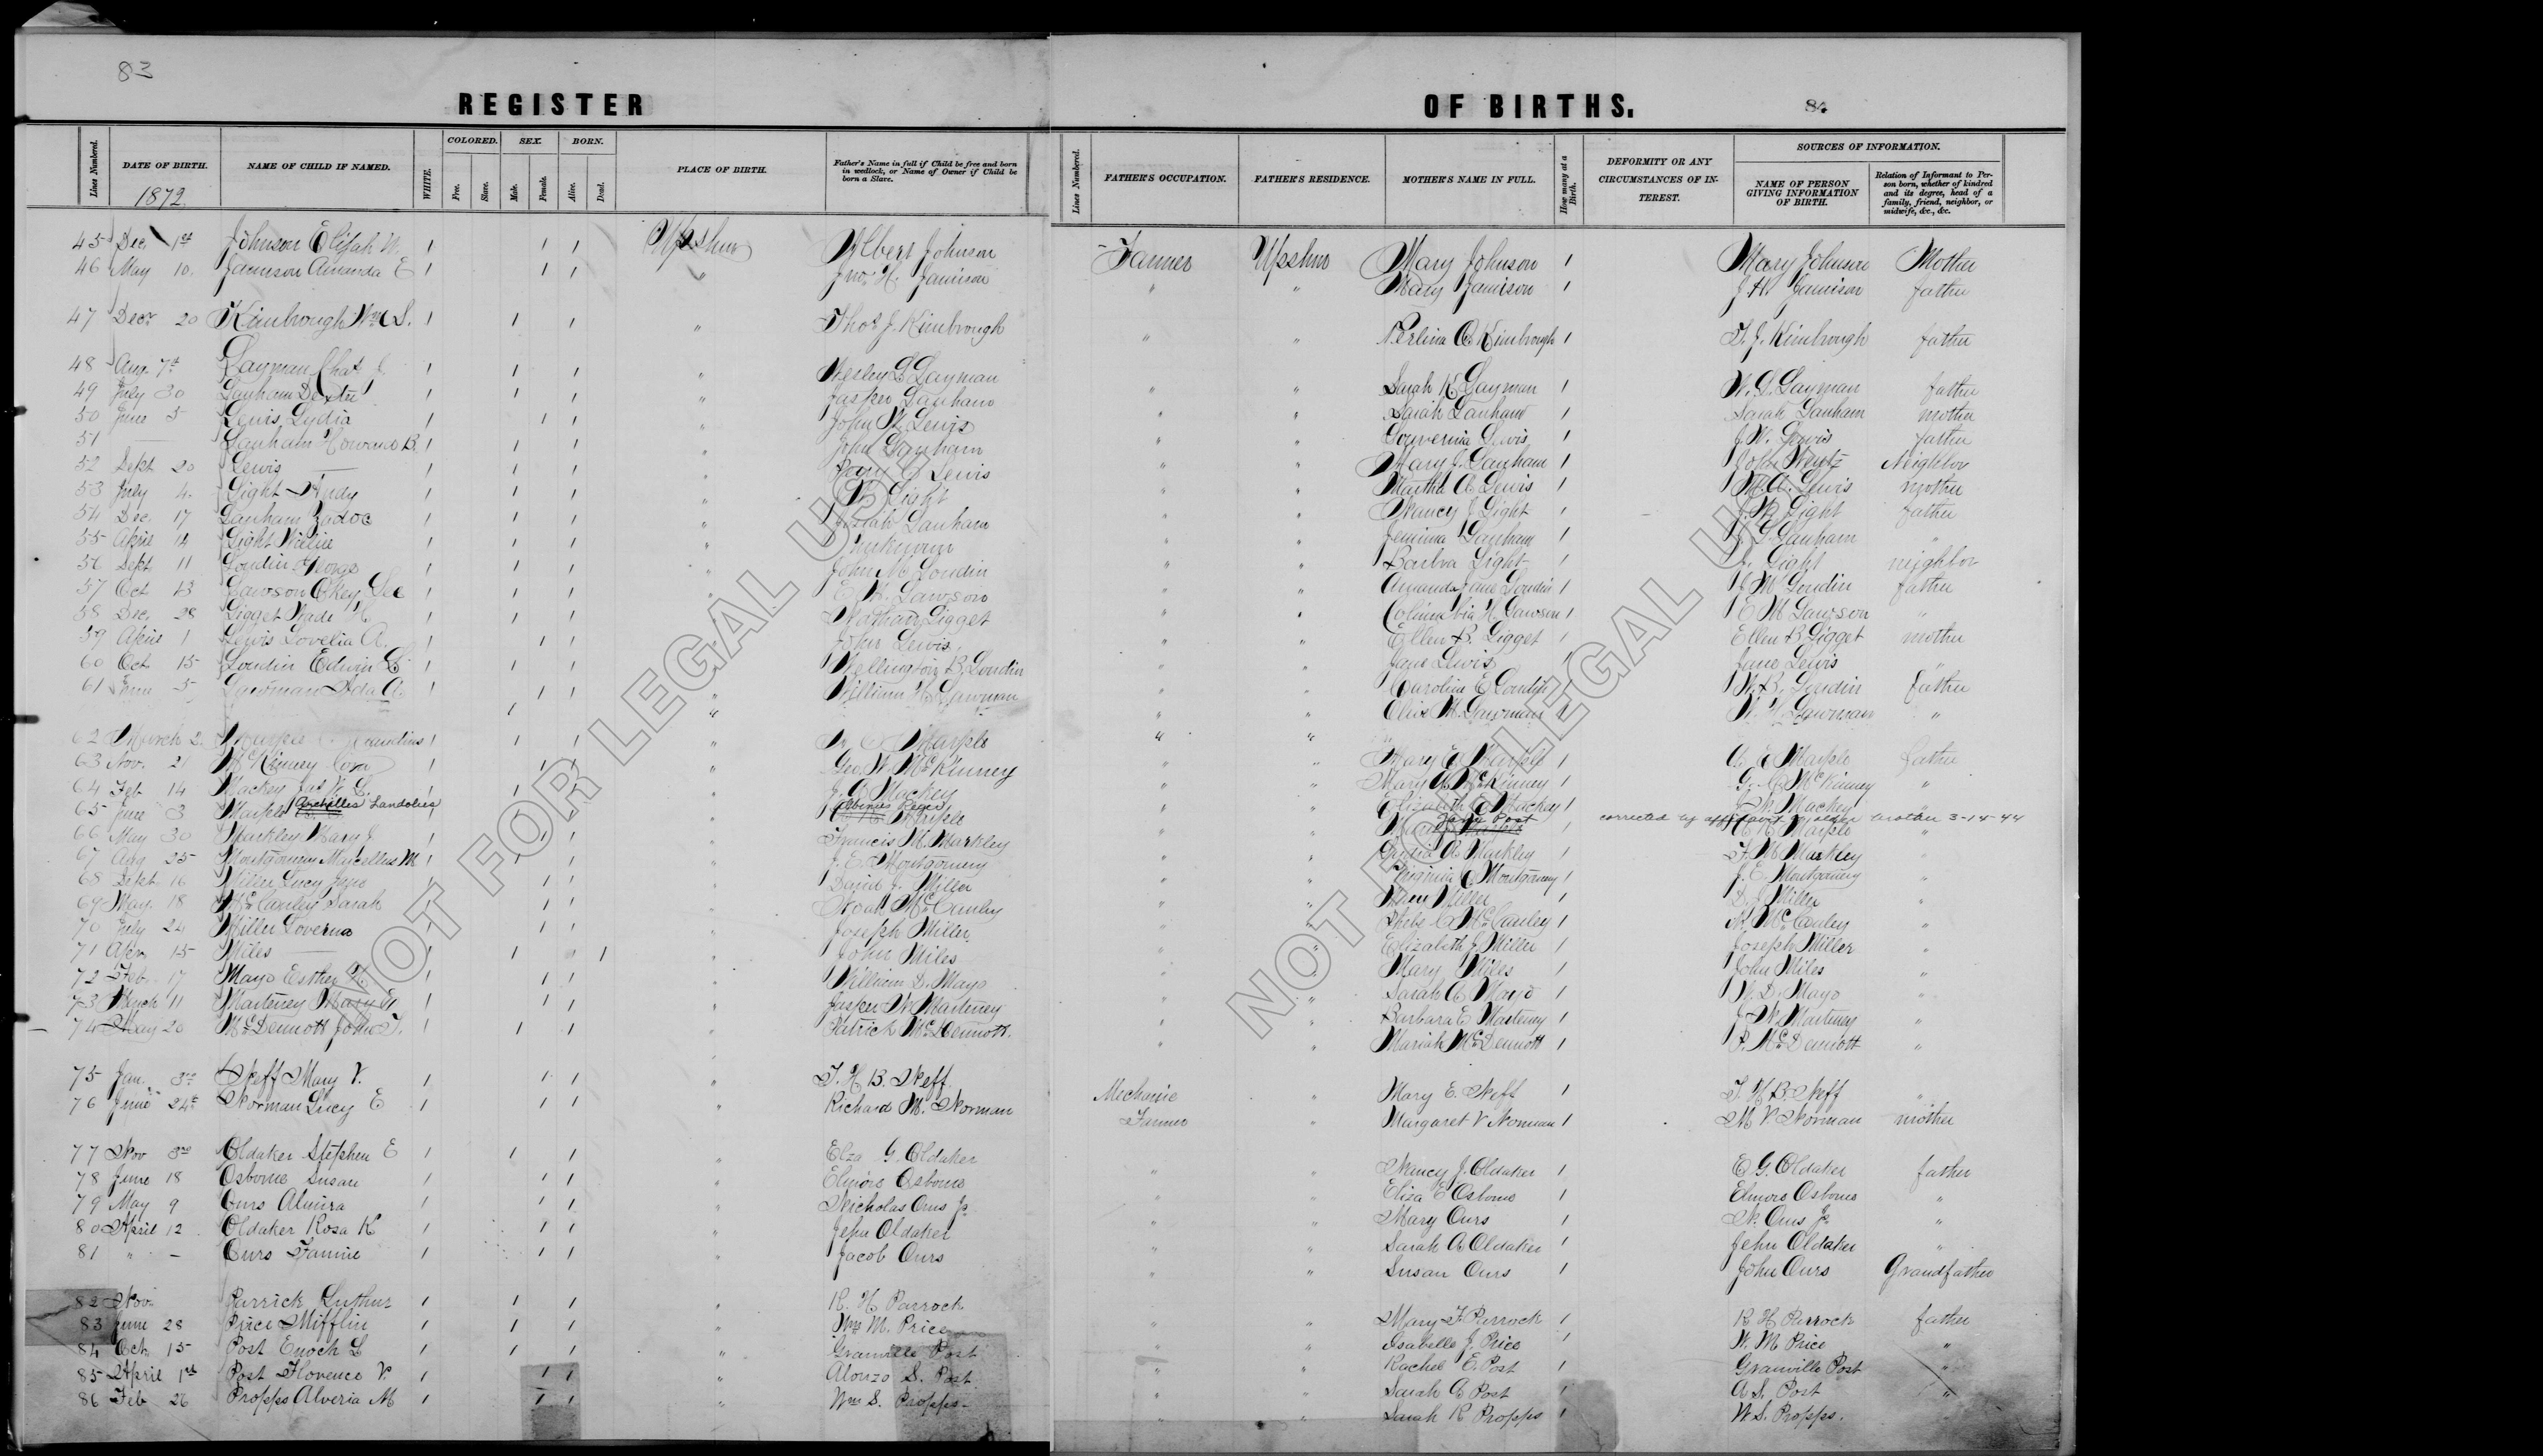 83
REGISTER
Lines Numbered.
DATE OF BIRTH.
1872
NAME OF CHILD IF NAMED.
WHITE.
COLORED.
Free.
Slave.
SEX.
Male.
Female.
BORN.
Alive.
Dead.
PLACE OF BIRTH.
Father's Name in full if Child be free and born in wedlock, or Name of Owner if Child be born a Slave.
45 Dec 1st Johnson Elijah W. Upshur Albert Johnson
46 May 10. Jamison Amanda E " Jno. H. Jamison
47 Decr 20 Kimbrough Wm S. " Thos J. Kimbrough
48 Aug. 7th Layman Chas J " Wesley L Layman
49 July 30 Lanham Dexter " Jasper Lanham
50 June 5 Lewis Lydia " John W. Lewis
51 — Lanham Howard B. " John Lanham
52 Sept 20 Lewis — " Lewis
53 July 4. Light " Light
54 Dec. 17 Lanham Zadoc " Josiah Lanham
55 April 14 Light Willie " Unknown
56 Sept 11 Loudin George " John M Loudin
57 Oct 13 Lawson Okey Lee " E. M. Lawson
58 Dec. 28 Ligget Wade H " Nathan Ligget
59 April 1 Lewis Lovelia A. " John Lewis
60 Oct. 15 Loudin Edwin L " Wellington B. Loudin
61 June 5 Lawman Ida A. " William H Lawman
62 March 2. Marple " Marple
63 Nov. 21 McKinney Cora " Geo. W. McKinney
64 Feb 14 Mackey Jas W. L. " Mackey
65 June 3 Marple Archilles Landolies " Albinus Reger Marple
66 May 30 Markley Mary J. " Francis M. Markley
67 Aug 25 Montgomery Marcellus M " J. E. Montgomery
68 Sept. 16 Miller Lucy Jane " David J. Miller
69 May 18 McCauley Sarah " Noah McCauley
70 July 24 Miller Loverna " Joseph Miller
71 Apr. 15 Miles — " John Miles
72 Feb. 17 Mayo Esther H " William D. Mayo
73 March 11 Marteney Mary E " Jasper W. Marteney
74 May 20 McDermott John T. " Patrick McDermott.
75 Jan. 3rd Neff Mary V. " T. H. B. Neff
76 June 24th Norman Lucy E " Richard M. Norman
77 Nov 3rd Oldaker Stephen E " Elza G. Oldaker
78 June 18 Osborne Susan " Elmore Osborne
79 May 9 Ours Almira " Nicholas Ours Jr
80 April 12 Oldaker Rosa K " Jehu Oldaker
81 " — Ours Fannie " Jacob Ours
82 Nov. Parrick Luther " R. H Parrock
83 June 28 Price Mifflin " Wm M. Price
84 Oct. 15 Post Enoch L " Granville Post
85 April 1st Post Florence V " Alonzo S. Post
86 Feb 26 Propps Alveria M " Wm S. Propps
NOT FOR LEGAL USE
OF BIRTHS.
84
Lines Numbered.
FATHER'S OCCUPATION.
FATHER'S RESIDENCE.
MOTHER'S NAME IN FULL.
How many at a Birth.
DEFORMITY OR ANY CIRCUMSTANCES OF INTEREST.
SOURCES OF INFORMATION.
NAME OF PERSON GIVING INFORMATION OF BIRTH.
Relation of Informant to Person born, whether of kindred and its degree, head of a family, friend, neighbor, or midwife, &c., &c.
Farmer Upshur Mary Johnson 1 Mary Johnson Mother
" " Mary Jamison 1 J. H. Jamison father
" " Perlina A Kimbrough 1 T. J. Kimbrough father
" " Sarah K Layman 1 W. L. Layman father
" " Sarah Lanham 1 Sarah Lanham mother
" " Louvernia Lewis 1 J. W. Lewis father
" " Mary J. Lanham 1 John Wentz Neighbor
" " Martha A Lewis 1 M. A. Lewis mother
" " Nancy J Light 1 J. W. Light father
" " Jemima Lanham 1 Lanham "
" " Barbra Light 1 J. Light neighbor
" " Amanda Jane Loudin 1 J M Loudin father
" " Columbia H Lawson 1 E M Lawson "
" " Ellen B. Ligget 1 Ellen B Ligget mother
" " Jane Lewis 1 Jane Lewis "
" " Caroline E Loudin 1 W. B. Loudin father
" " M. Lawman 1 W. H. Lawman "
" " Mary E Marple 1 Marple father
" " Mary A McKinney 1 McKinney "
" " Elizabeth Mackey 1 Mackey "
" " Jane Post 1 corrected by affidavit of older brother 3-14-44 Marple "
" " Markley 1 F. M Markley "
" " Virginia C Montgomery 1 J. E. Montgomery "
" " Miller 1 D. J Miller "
" " Phebe C McCauley 1 N. McCauley "
" " Elizabeth J. Miller 1 Joseph Miller "
" " Mary Miles 1 John Miles "
" " Sarah A Mayo 1 W. D. Mayo "
" " Barbara E Marteney 1 J W Marteney "
" " Mariah McDermott 1 P. McDermott "
Mechanic " Mary E. Neff 1 T. H B. Neff "
Farmer " Margaret V Norman 1 M V. Norman mother
" " Nancy J. Oldaker 1 E. G. Oldaker father
" " Eliza E Osborne 1 Elmore Osborne "
" " Mary Ours 1 N. Ours Jr "
" " Sarah A Oldaker 1 Jehu Oldaker "
" " Susan Ours 1 John Ours Grandfather
" " Mary F Parrock 1 R H Parrock father
" " Isabelle J. Price 1 W. M Price "
" " Rachel E. Post 1 Granville Post "
" " Sarah A Post 1 A. S. Post "
" " Sarah R Propps 1 W. S. Propps.
NOT FOR LEGAL USE